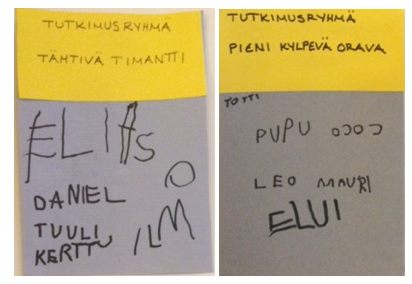 TUTKIMUSRYHMÄ
TÄHTIVÄ TIMANTTI
ELIAS
DANIEL
TUULI
KERTTU
ILMO
TUTKIMUSRYHMÄ
PIENI KYLPEVÄ ORAVA
TOTTI
PUPU
LEO MAURI
ELVI